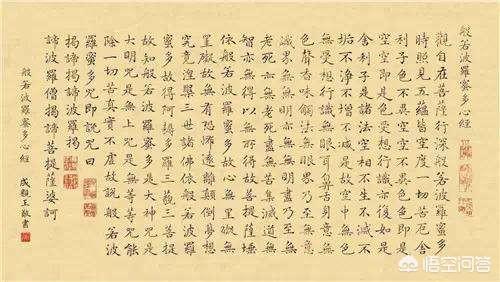 般若波羅蜜多心經
觀自在菩薩行深般若波羅蜜多
時照見五蘊皆空度一切苦厄舍
利子色不異空空不異色色即是
空空即是色受想行識亦復如是
舍利子是諸法空相不生不滅不
垢不淨不增不減是故空中無色
無受想行識無眼耳鼻舌身意無
色聲香味觸法無眼界乃至無意
識界無無明亦無無明盡乃至無
老死亦無老死盡無苦集滅道無
智亦無得以無所得故菩提薩埵
依般若波羅蜜多故心無罣礙無
罣礙故無有恐怖遠離顛倒夢想
究竟涅槃三世諸佛依般若波羅
蜜多故得阿耨多羅三藐三菩提
故知般若波羅蜜多是大神咒是
大明咒是無上咒是無等等咒能
除一切苦真實不虛故說般若波
羅蜜多咒即說咒曰
揭諦揭諦波羅揭
諦波羅僧揭諦菩提薩婆訶
般若波羅蜜多心經 成親王敬書
悟空问答